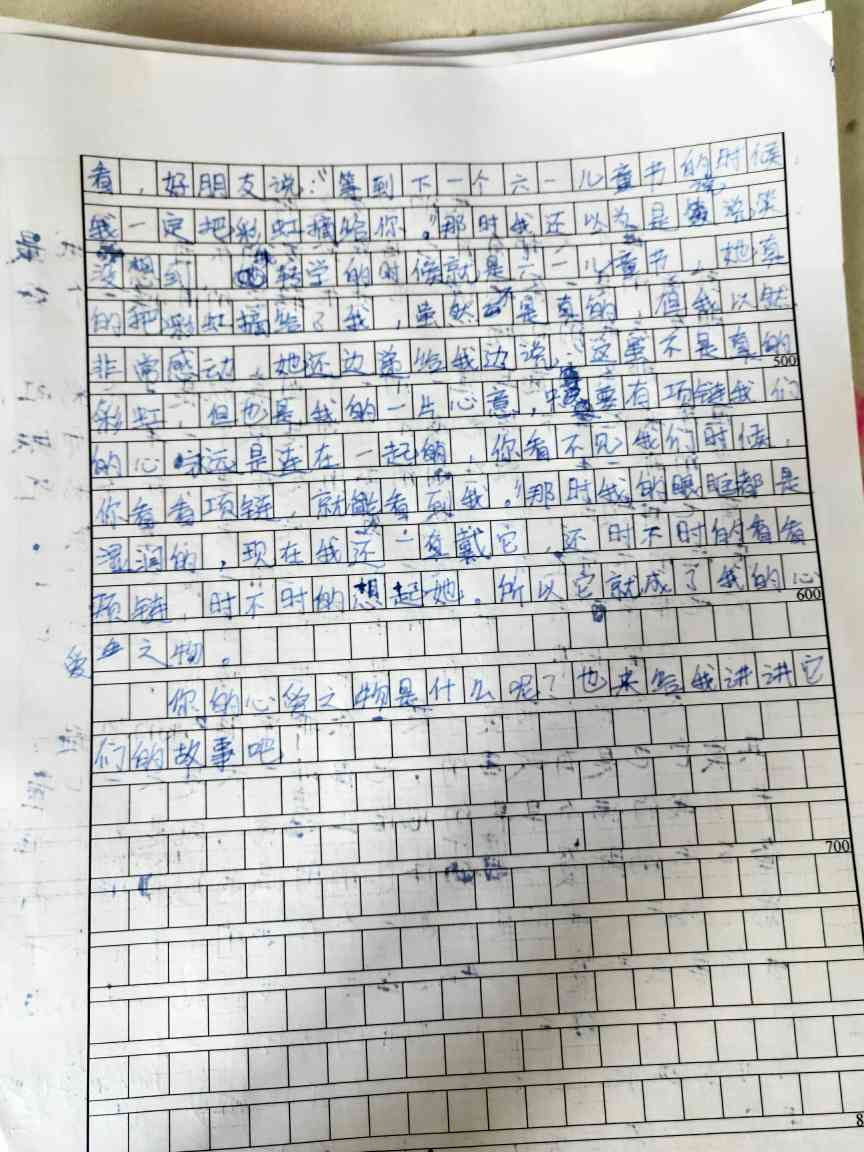 看，好朋友说：“等到下一个六一儿童节的时候
我一定把彩虹摘给你。”那时我还以为是说笑
没想到，转学的时候就是六一儿童节，她真
的把彩虹摘给了我，虽然是真的，但我以然
非常感动，她还边递给我边说，“这虽不是真的
500
彩虹，但也是我的一片心意，要有项链我们
的心永远是连在一起的，你看不见我们时候，
你看看项链，就能看到我。”那时我的眼眶都是
湿润的，现在我还一直戴它，还时不时的看看
项链，时不时的想起她。所以它就成了我的心
600
爱之物。
你的心爱之物是什么呢？也来给我讲讲它
们的故事吧
700
8